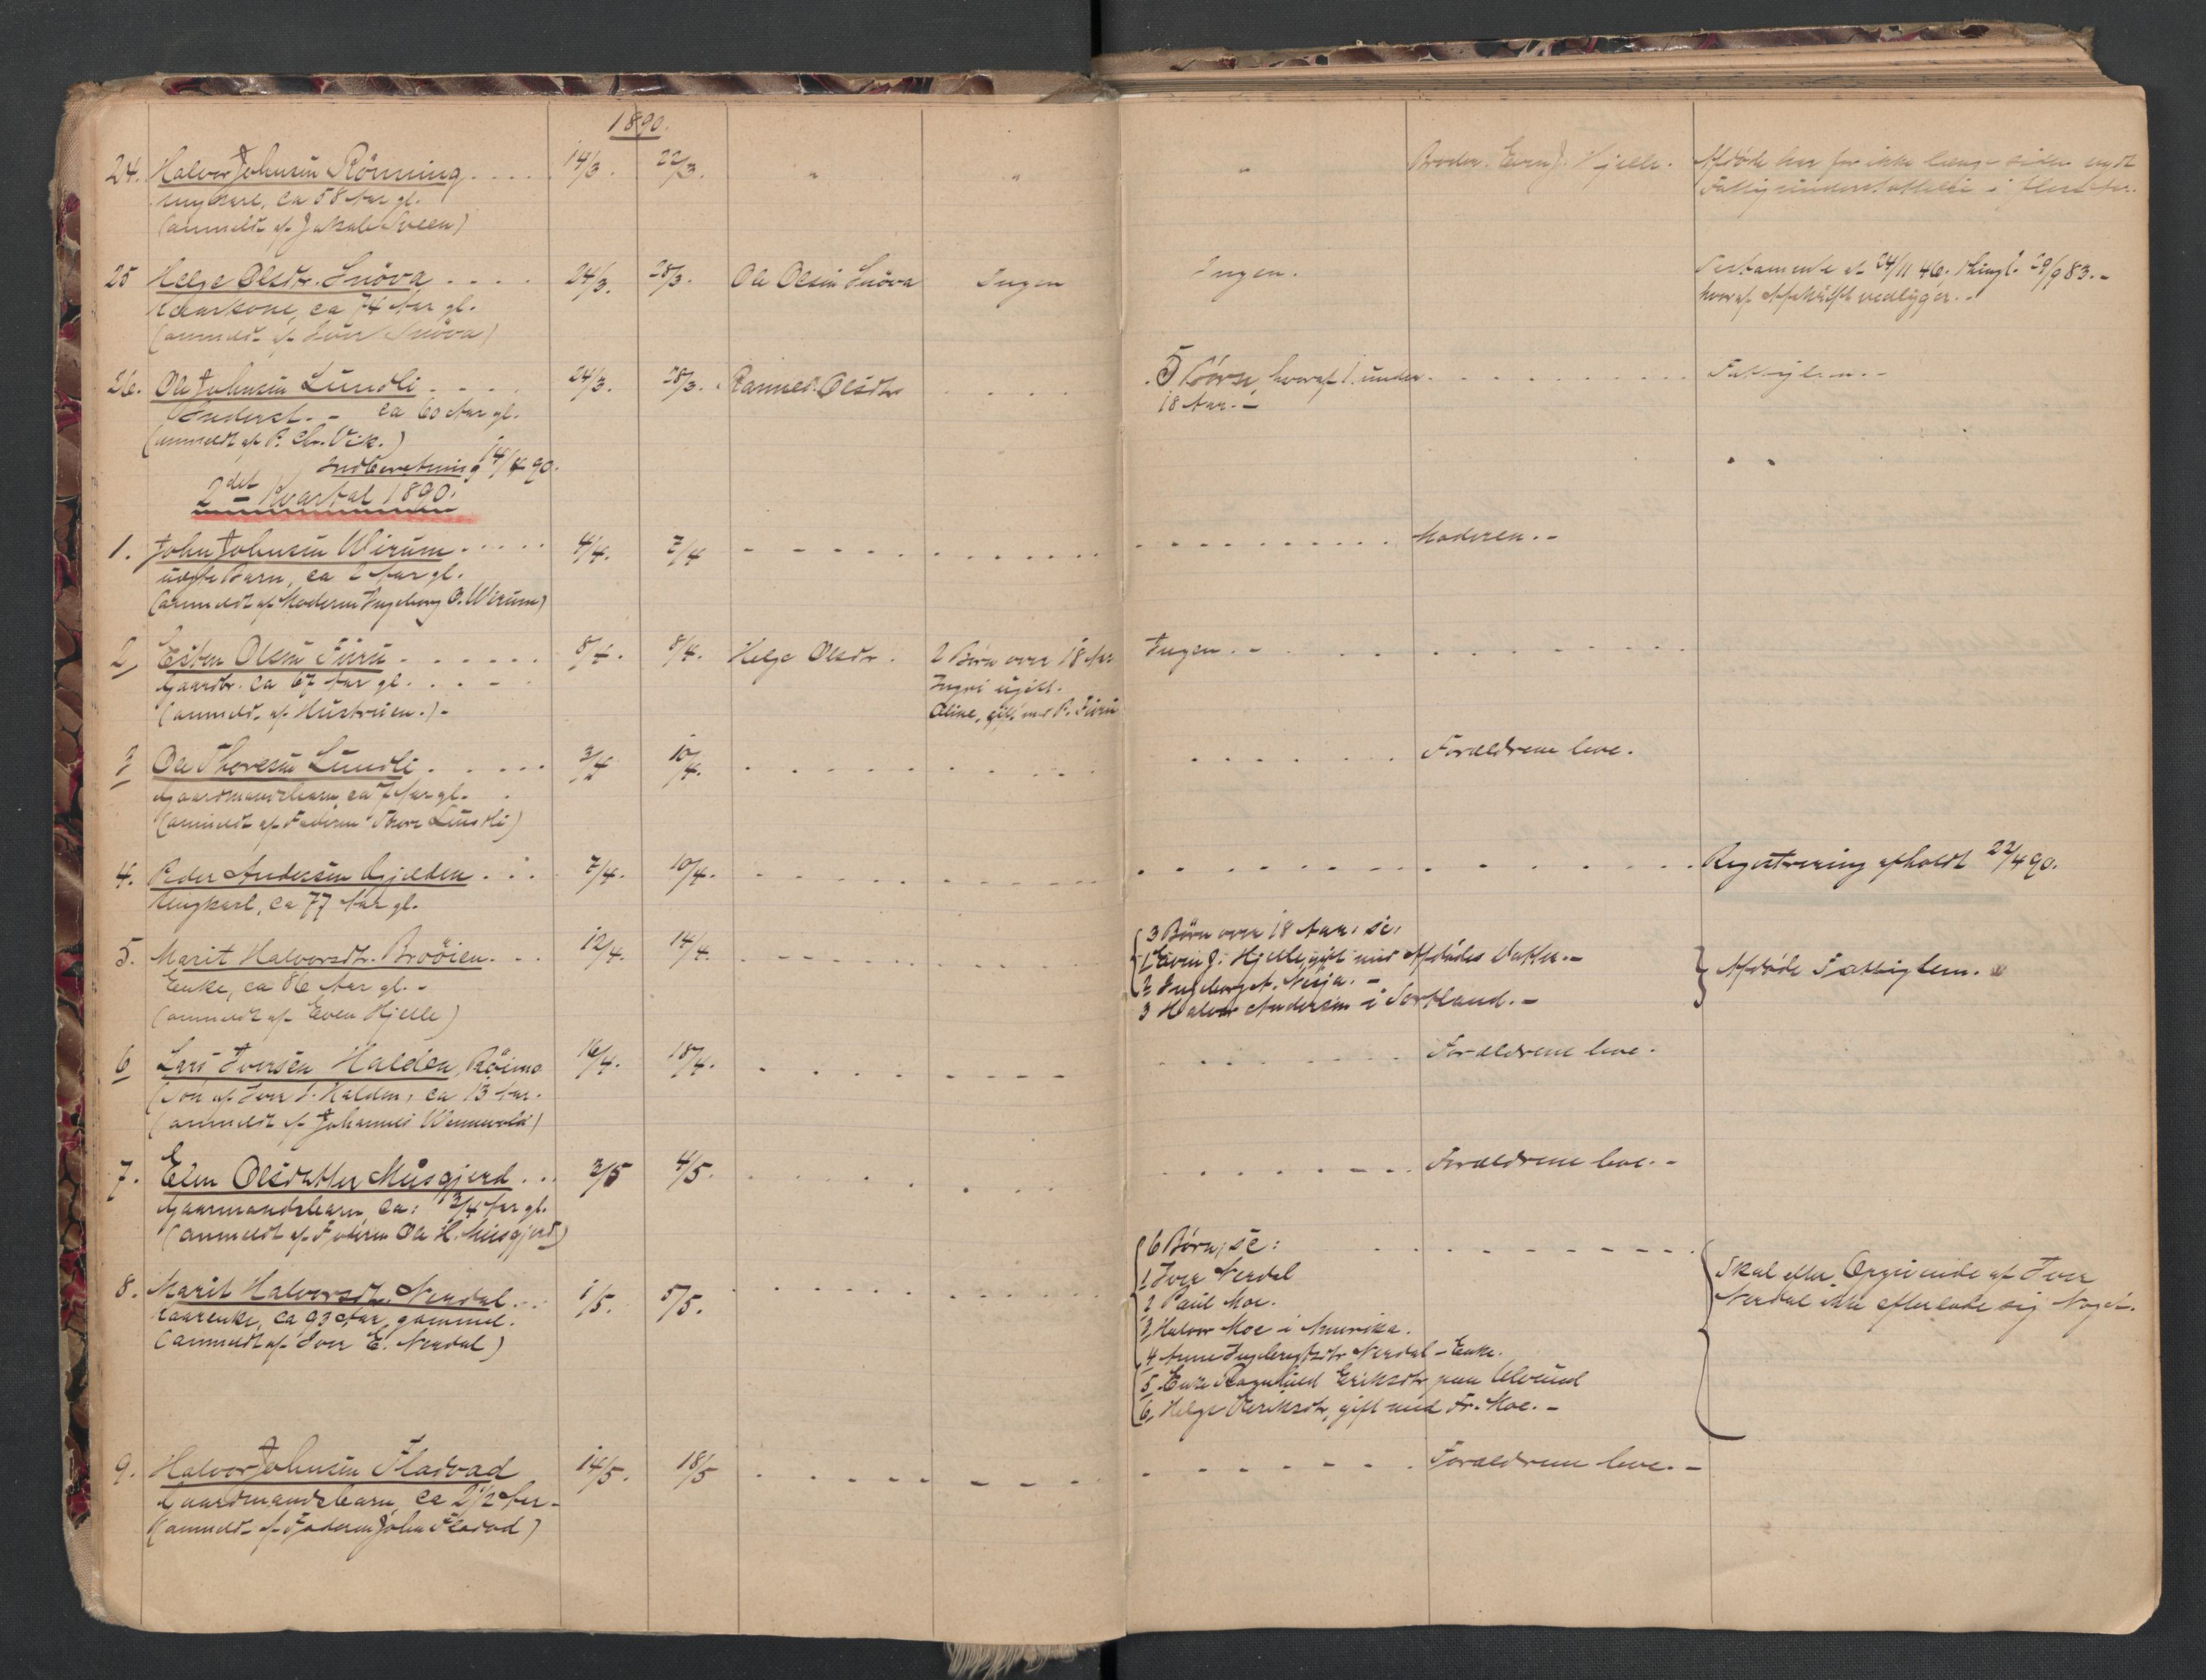 1890.
24. Halvor Johnsen Rönning . . . . 14/3. 22/3. " " " Broder. Even J. Hjelle. Afdøde har for ikke længe siden nydt
Ungkarl, ca 58 Aar gl. Fattigunderstøttelse i flere Aar.
(anmeldt af Jakob Sveen)
25 Helge Olsdtr. Snöva . . . . 24/3. 28/3. Ole Olsen Snöva Ingen Ingen. Testamente af 24/11 46. thingl. 29/9 83. -
Kaarkone, ca 74 Aar gl. hvoraf Afskrift vedligger. -
(anmeldt af Iver Snöva)
26. Ole Johnsen Lundli . . . . 24/3. 28/3. Rannei Olsdtr . . . . 5 Børn, hvoraf 1 under . . . . Fattiglem. -
Inderst. - ca 60 Aar gl. 18 Aar. -
(anmeldt af P. Chr. Vik.)
Indberetning 14/4 90.
2det Kvartal 1890.
1. John Johnsen Wirum . . . . 4/4. 7/4 - - - - . . . . Moderen. -
uægte Barn, ca 2 Aar gl.
(anmeldt af Moderen Ingeborg O. Wirum)
2, Esten Olsen Furu . . . . 8/4. 8/4. Helge Olsdtr. 2 Børn over 18 Aar Ingen. - . . . .
Gaardbr. ca 67 Aar gl. . . . Ingri ugift.
(anmeldt af Hustruen.) - Oline, gift med P. Furu
3 Ole Thoresen Lundli . . . . 3/4 10/4. . . . . Forældrene leve.
Gaardmandsbarn, ca 7 Aar gl.
(anmeldt af Faderen Thore Lundli)
4. Peder Andersen Gjelden . . . 7/4. 10/4. . . . . Registrering afholdt 22/4 90.
Ungkarl, ca 77 Aar gl.
5. Marit Halvorsdtr. Broöien . . . 12/4. 14/4. . . . . 3 Børn over 18 Aar, sc:
Enke, ca 86 Aar gl. - 1 Even J. Hjelle gift med Afdødes Datter. - Afdøde Fattiglem.
(anmeldt af Even Hjelle) 2 Ingeborg A. Nisja. -
3 Halvor Andersen i Sortland. -
6 Lars Iversen Halden, Röimo 16/4. 18/4. . . . . Forældrene leve.
(Søn af Iver L. Halden, ca 13 Aar.
(anmeldt af Johannes Wennevold)
7. Elen Olsdatter Musgjerd . . . 2/5 4/5. . . . . Forældrene leve. -
Gaarmandsbarn ca: 3/4 Aar gl.
(anmeldt af Faderen Ole H. Musgjerd)
8. Marit Halvorsdtr. Nerdal . . . 1/5. 5/5. . . . . 6 Børn, sc: . . . .
Kaarenke, ca 93 Aar gammel. 1 Iver Nerdal Skal efter Opgivende af Iver
(anmeldt af Iver E. Nerdal) 2 Paul Moe. Nerdal ikke efterlade sig Noget.
3, Halvor Moe i Amerika.
4 Anne Ingebrigtsdtr Nerdal - Enke.
5, Enke Ragnhild Eriksdtr paa Ulvund
6, Helge Eriksdtr, gift med Fr. Moe. -
9. Halvor Johnsen Fladvad 14/5. 18/5 . . . . Forældrene leve. -
Gaardmandsbarn, ca 2 1/2 Aar -
(anmeldt af Faderen John Fladvad)